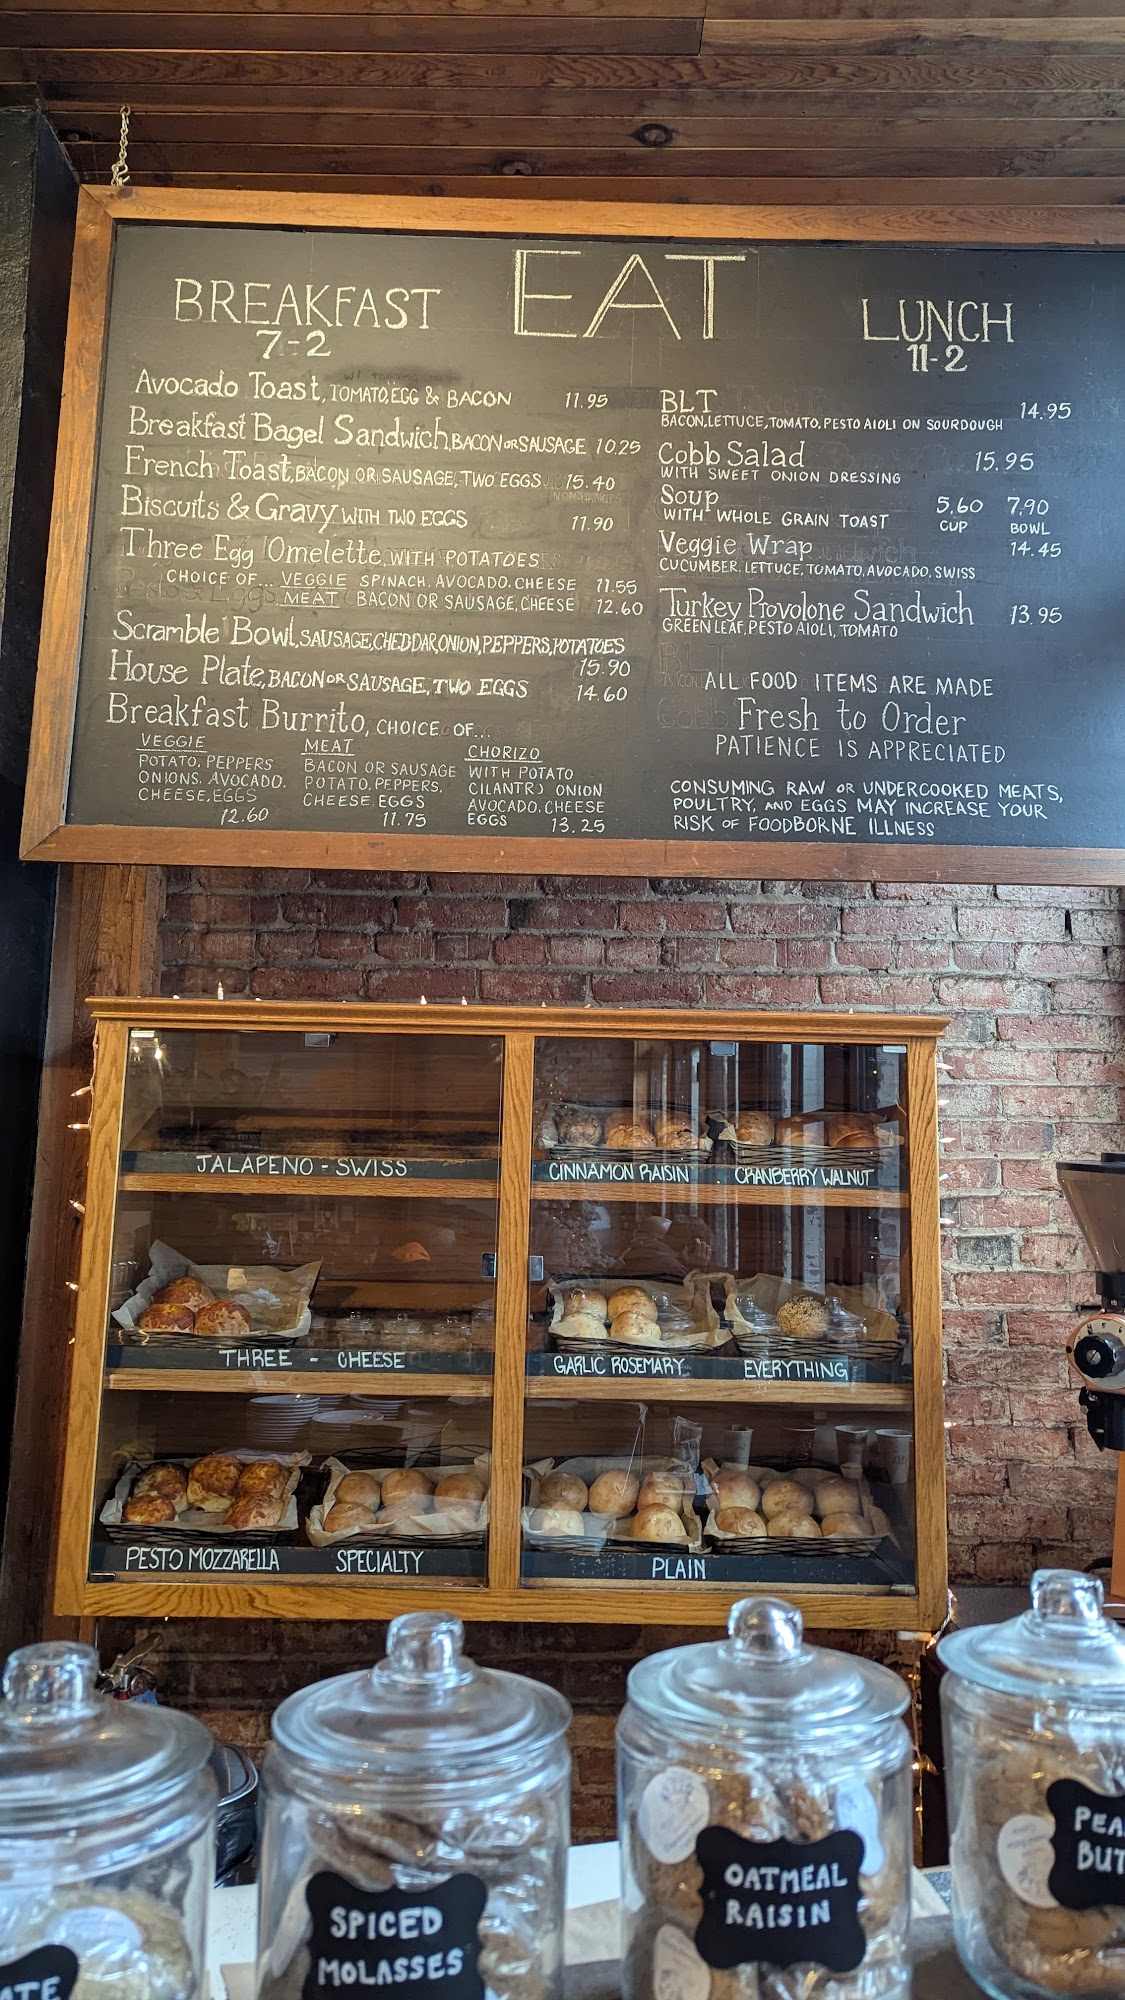 EAT
BREAKFAST
7-2
Avocado Toast, TOMATO, EGG & BACON 11.95
Breakfast Bagel Sandwich, BACON OR SAUSAGE 10.25
French Toast, BACON OR SAUSAGE, TWO EGGS 15.40
NO CHANGES
Biscuits & Gravy WITH TWO EGGS 11.90
Three Egg Omelette, WITH POTATOES
CHOICE OF... VEGGIE SPINACH, AVOCADO, CHEESE 11.55
MEAT BACON OR SAUSAGE, CHEESE 12.60
Scramble Bowl, SAUSAGE, CHEDDAR, ONION, PEPPERS, POTATOES
15.90
House Plate, BACON OR SAUSAGE, TWO EGGS 14.60
Breakfast Burrito, CHOICE OF...
VEGGIE
POTATO, PEPPERS
ONIONS, AVOCADO,
CHEESE, EGGS
12.60
MEAT
BACON OR SAUSAGE
POTATO, PEPPERS,
CHEESE, EGGS
11.75
CHORIZO
WITH POTATO
CILANTRO ONION
AVOCADO, CHEESE
EGGS 13.25
LUNCH
11-2
BLT 14.95
BACON, LETTUCE, TOMATO, PESTO AIOLI ON SOURDOUGH
Cobb Salad 15.95
WITH SWEET ONION DRESSING
Soup 5.60 7.90
WITH WHOLE GRAIN TOAST CUP BOWL
Veggie Wrap 14.45
CUCUMBER, LETTUCE, TOMATO, AVOCADO, SWISS
Turkey Provolone Sandwich 13.95
GREEN LEAF, PESTO AIOLI, TOMATO
ALL FOOD ITEMS ARE MADE
Fresh to Order
PATIENCE IS APPRECIATED
CONSUMING RAW OR UNDERCOOKED MEATS,
POULTRY, AND EGGS MAY INCREASE YOUR
RISK OF FOODBORNE ILLNESS
JALAPENO - SWISS
CINNAMON RAISIN
CRANBERRY WALNUT
THREE - CHEESE
GARLIC ROSEMARY
EVERYTHING
PESTO MOZZARELLA
SPECIALTY
PLAIN
SPICED
MOLASSES
OATMEAL
RAISIN